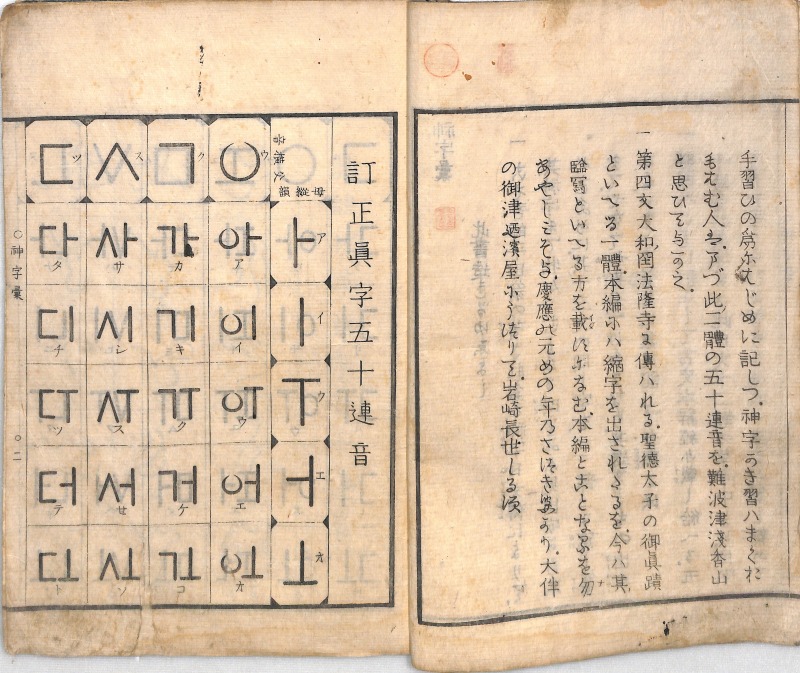 手習ひの爲尓はじめに記しつ.神字の習ハまく
もはむ人は.まづ此二體の五十連音を.難波津淺香山
と思ひて
一 第四文大和国法隆寺に傳ハれる.聖德太子の御眞蹟
といへる一體本編尓ハ縮字を出されたるを.今ハ其
臨寫といへる方を載になむ.本編とことなるを勿
あやしミそよ.慶應の元めの年乃さつきより.大伴
の御津廼濱屋尓うつりて.岩崎長世しる須
訂正眞字五十連音
母縦韻
父横音
ㅏ ア
ㅣ イ
ㅜ ウ
ㅓ エ
ㅗ オ
ㅇ ウ
아 ア
이 イ
우 ウ
어 エ
오 オ
ㄱ ク
가 カ
기 キ
구 ク
거 ケ
고 コ
ㅅ ス
사 サ
시 シ
수 ス
서 セ
소 ソ
ㄷ ツ
다 タ
디 チ
두 ツ
더 テ
도 ト
〇神字彙
〇二